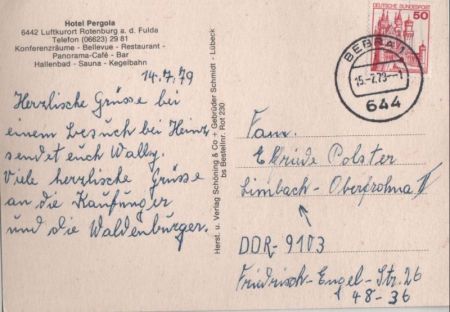 Hotel Pergola
6442 Luftkurort Rotenburg a. d. Fulda
Telefon (06623) 29 81
Konferenzräume - Bellevue - Restaurant -
Panorama-Café - Bar
Hallenbad - Sauna - Kegelbahn
14.7.79
Herzlische Grüsse bei
einem Besuch bei Heinz
sendet euch Wally.
Viele herzlische Grüsse
an die Kaufunger
und die Waldenburger.
Herst. u. Verlag Schöning & Co + Gebrüder Schmidt - Lübeck
bs Bestellnr. Rot 230
DEUTSCHE BUNDESPOST
50
BEBRA 1
15.-7.79
644
Fam.
Elfriede Polster
Limbach-Oberfrohna II
DDR-9103
Friedrich-Engel-Str. 26
48-36